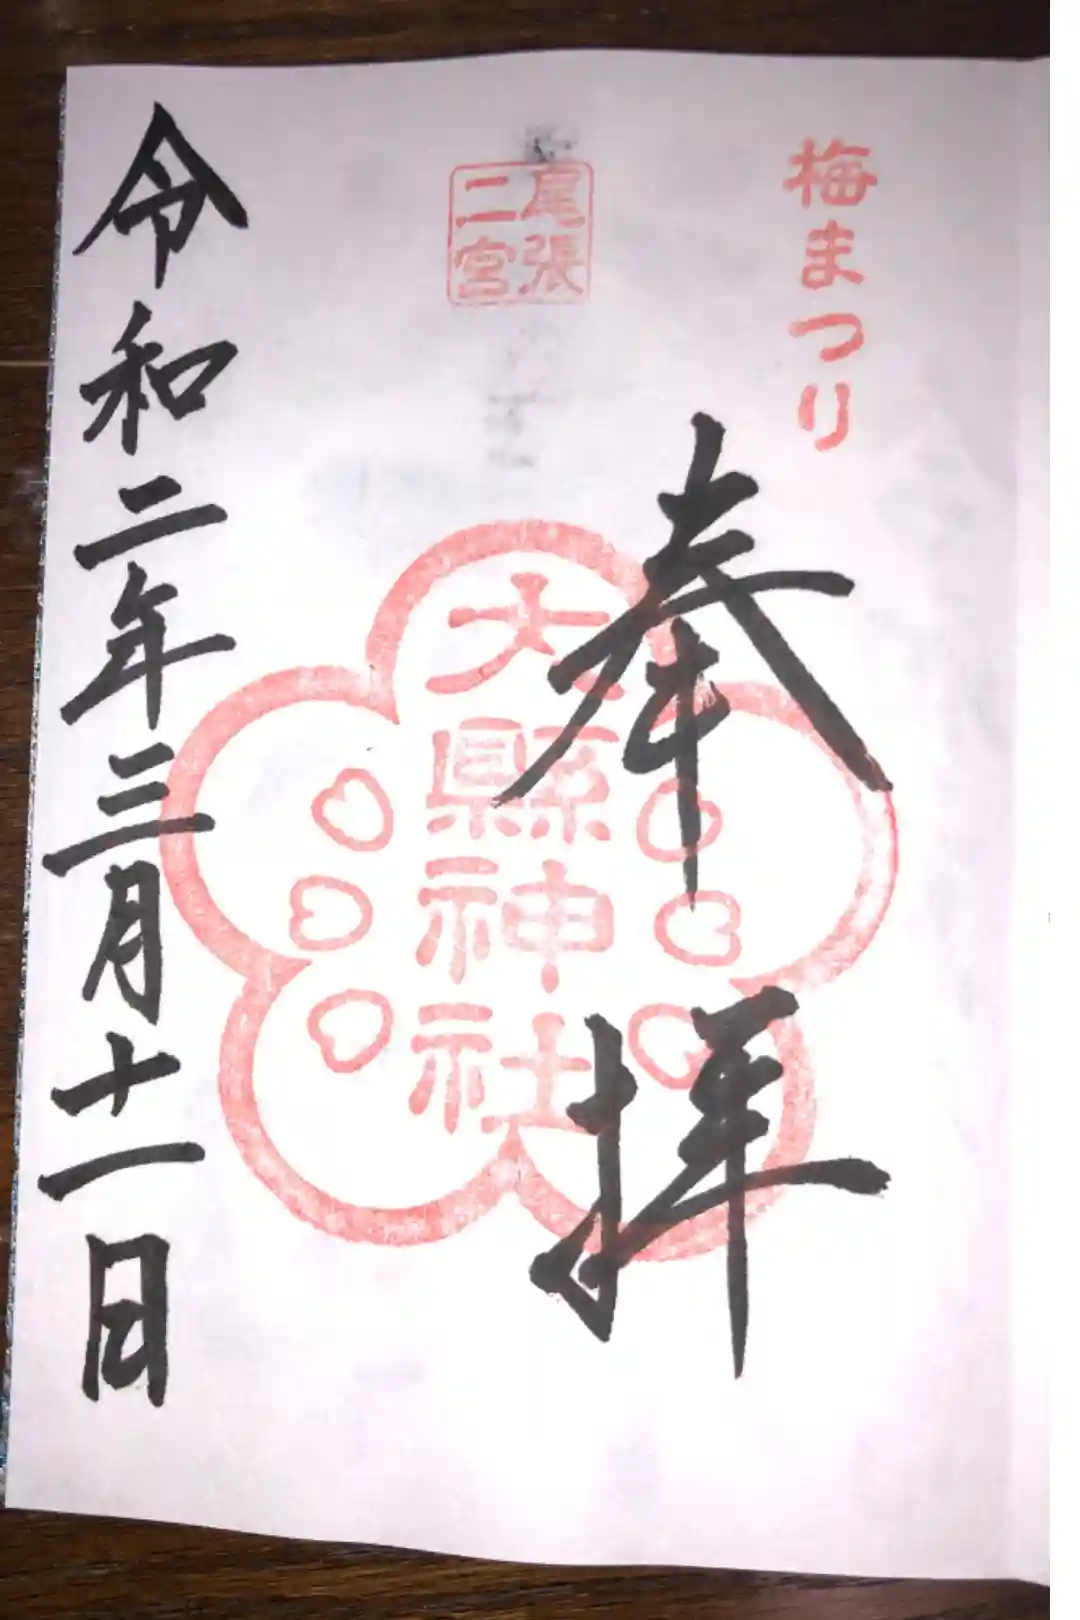 梅まつり
奉拝
尾張
二宮
大縣神社
令和二年三月十一日